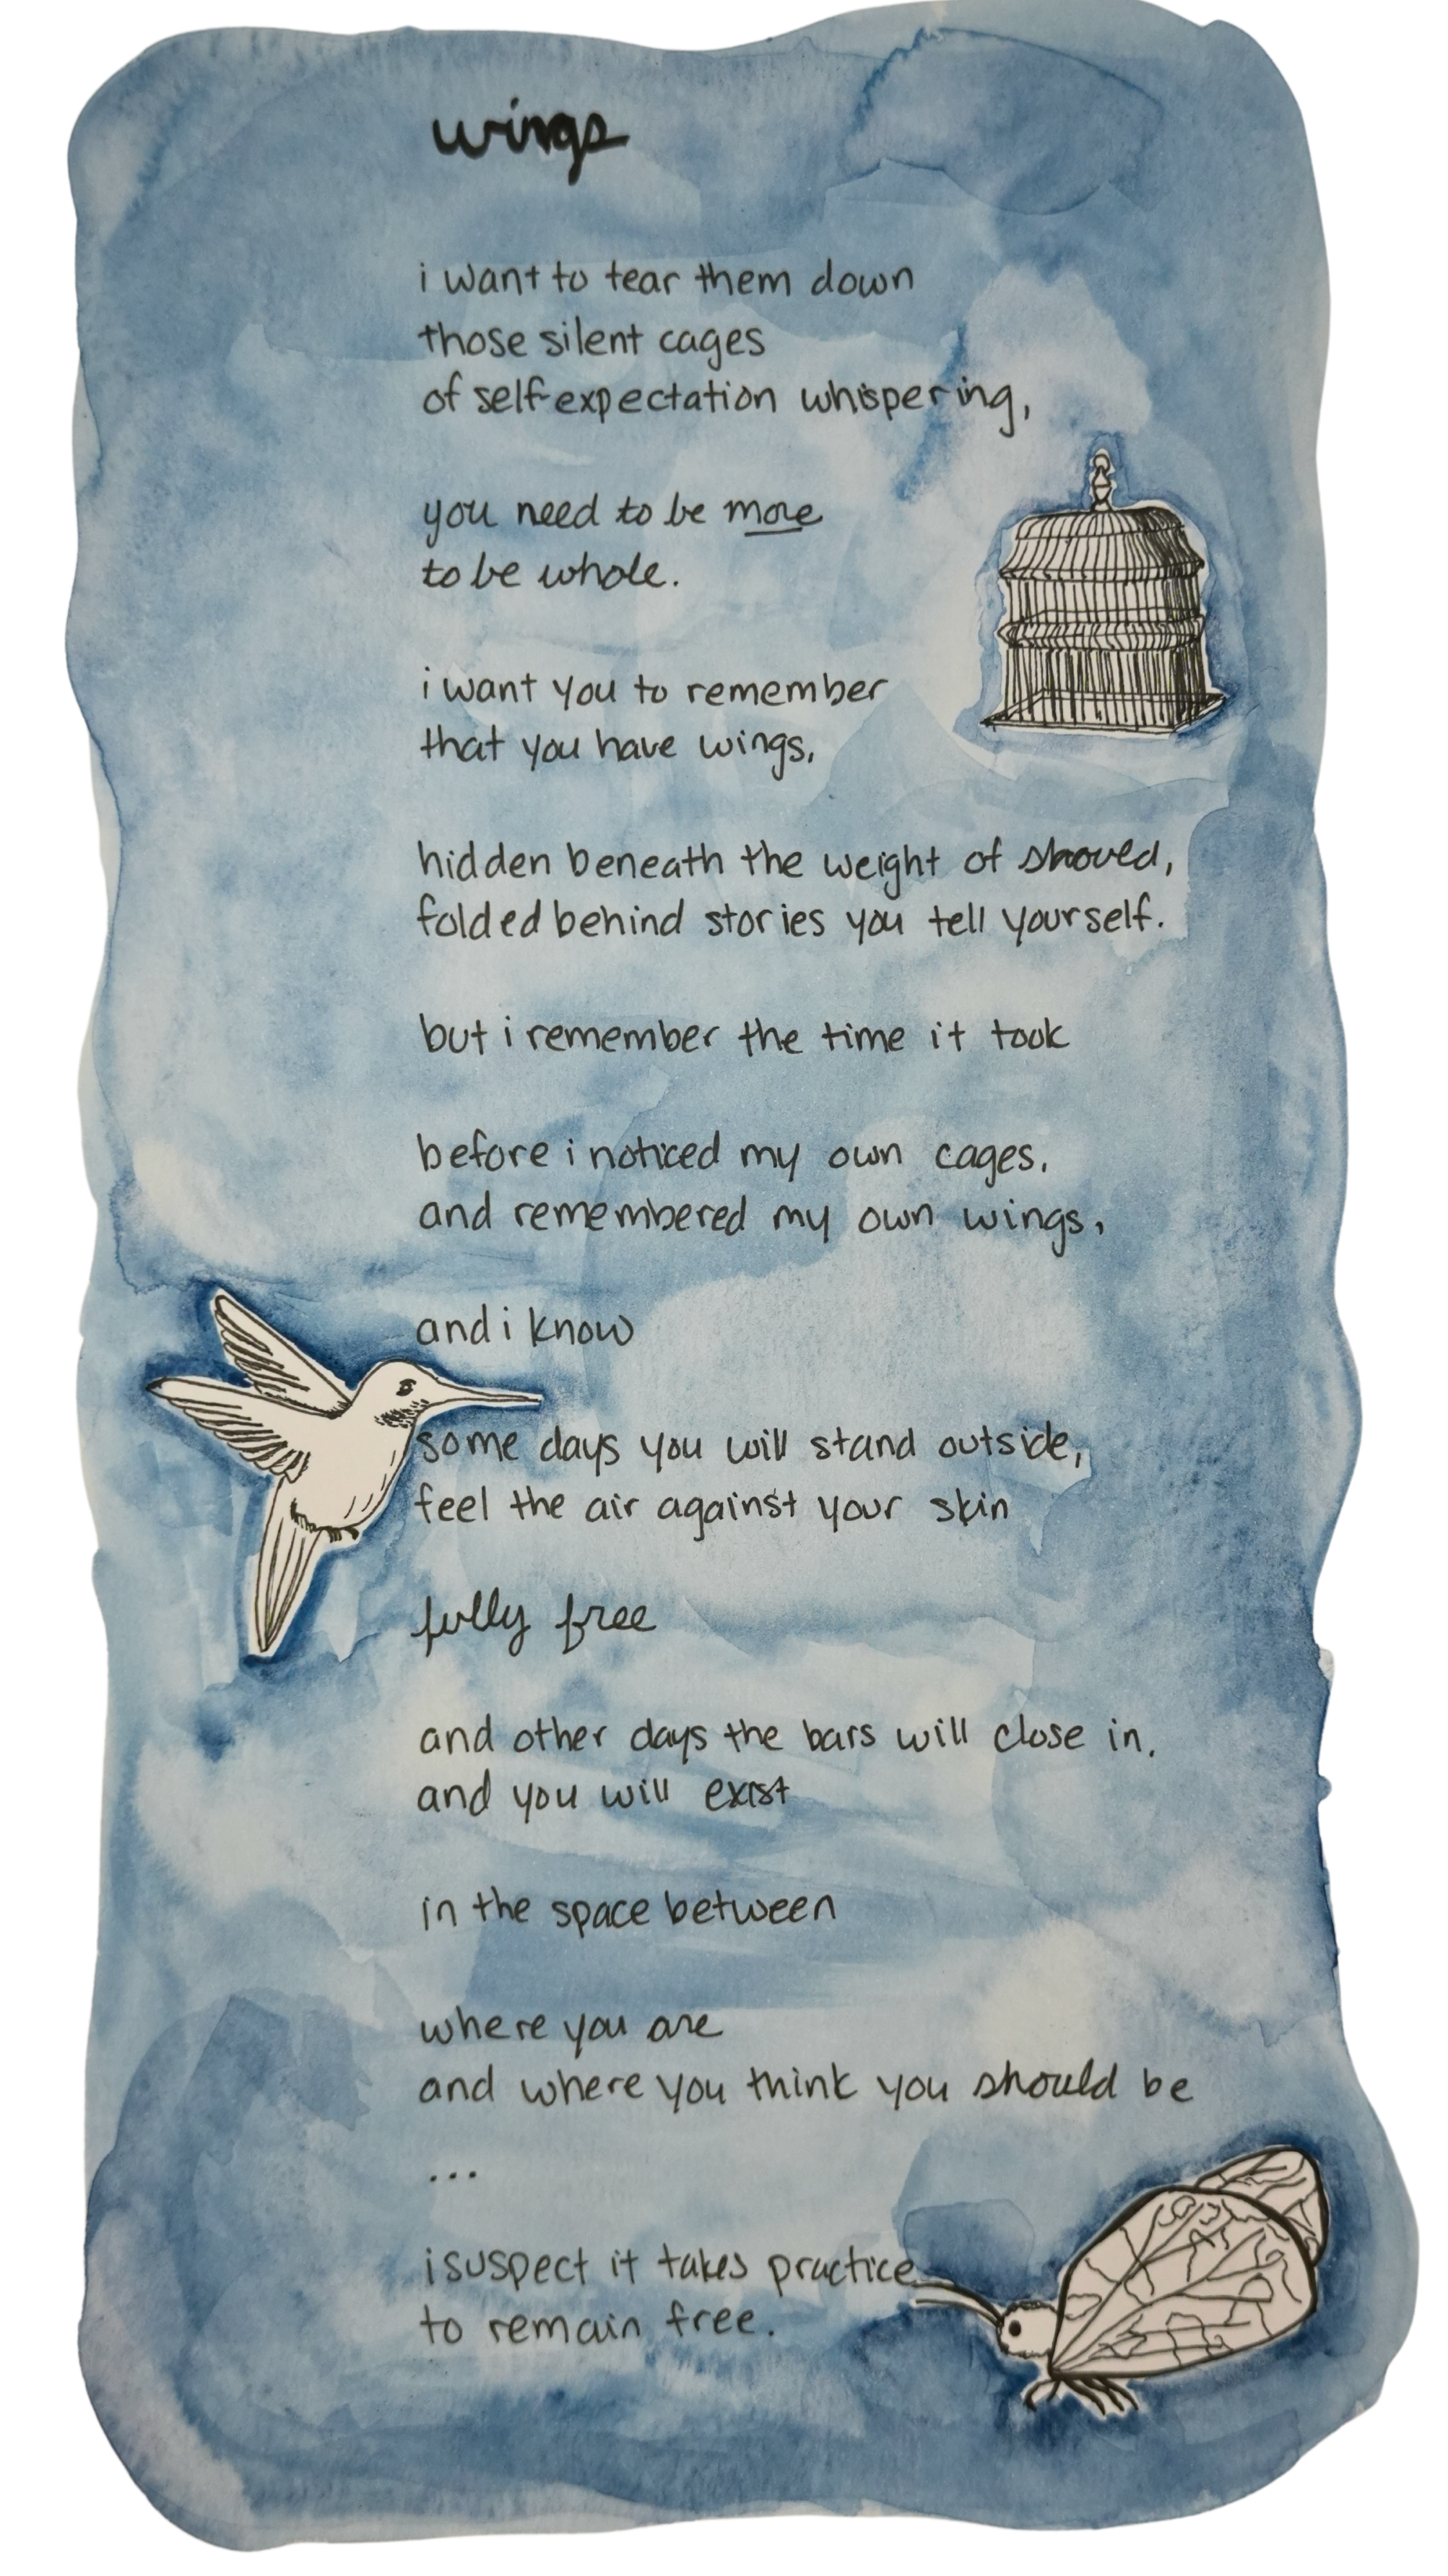 wings
i want to tear them down
those silent cages
of self-expectation whispering,
you need to be more
to be whole.
i want you to remember
that you have wings,
hidden beneath the weight of shoved,
folded behind stories you tell yourself.
but i remember the time it took
before i noticed my own cages,
and remembered my own wings,
and i know
some days you will stand outside,
feel the air against your skin
fully free
and other days the bars will close in,
and you will exist
in the space between
where you are
and where you think you should be
...
i suspect it takes practice
to remain free.